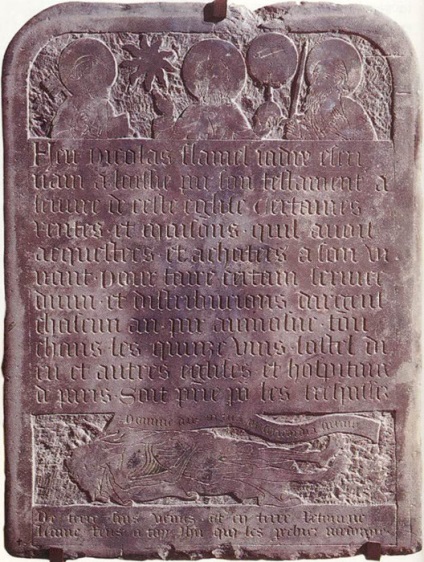 Feu nicolas flamel iadis escri
uain a laissie par son testament a
leuure de ceste eglise Certaines
rentes et maisons quil auoit
acquestees et achetees a son vi
uant pour faire certain seruice
diuin et distribucions dargent
chascun an par aumosne tou
chans les quinze vins lostel di
eu et autres eglises et hospitaux
de paris Soit prie po les trespasses
Domine
De terre suis venus et en terre retourne